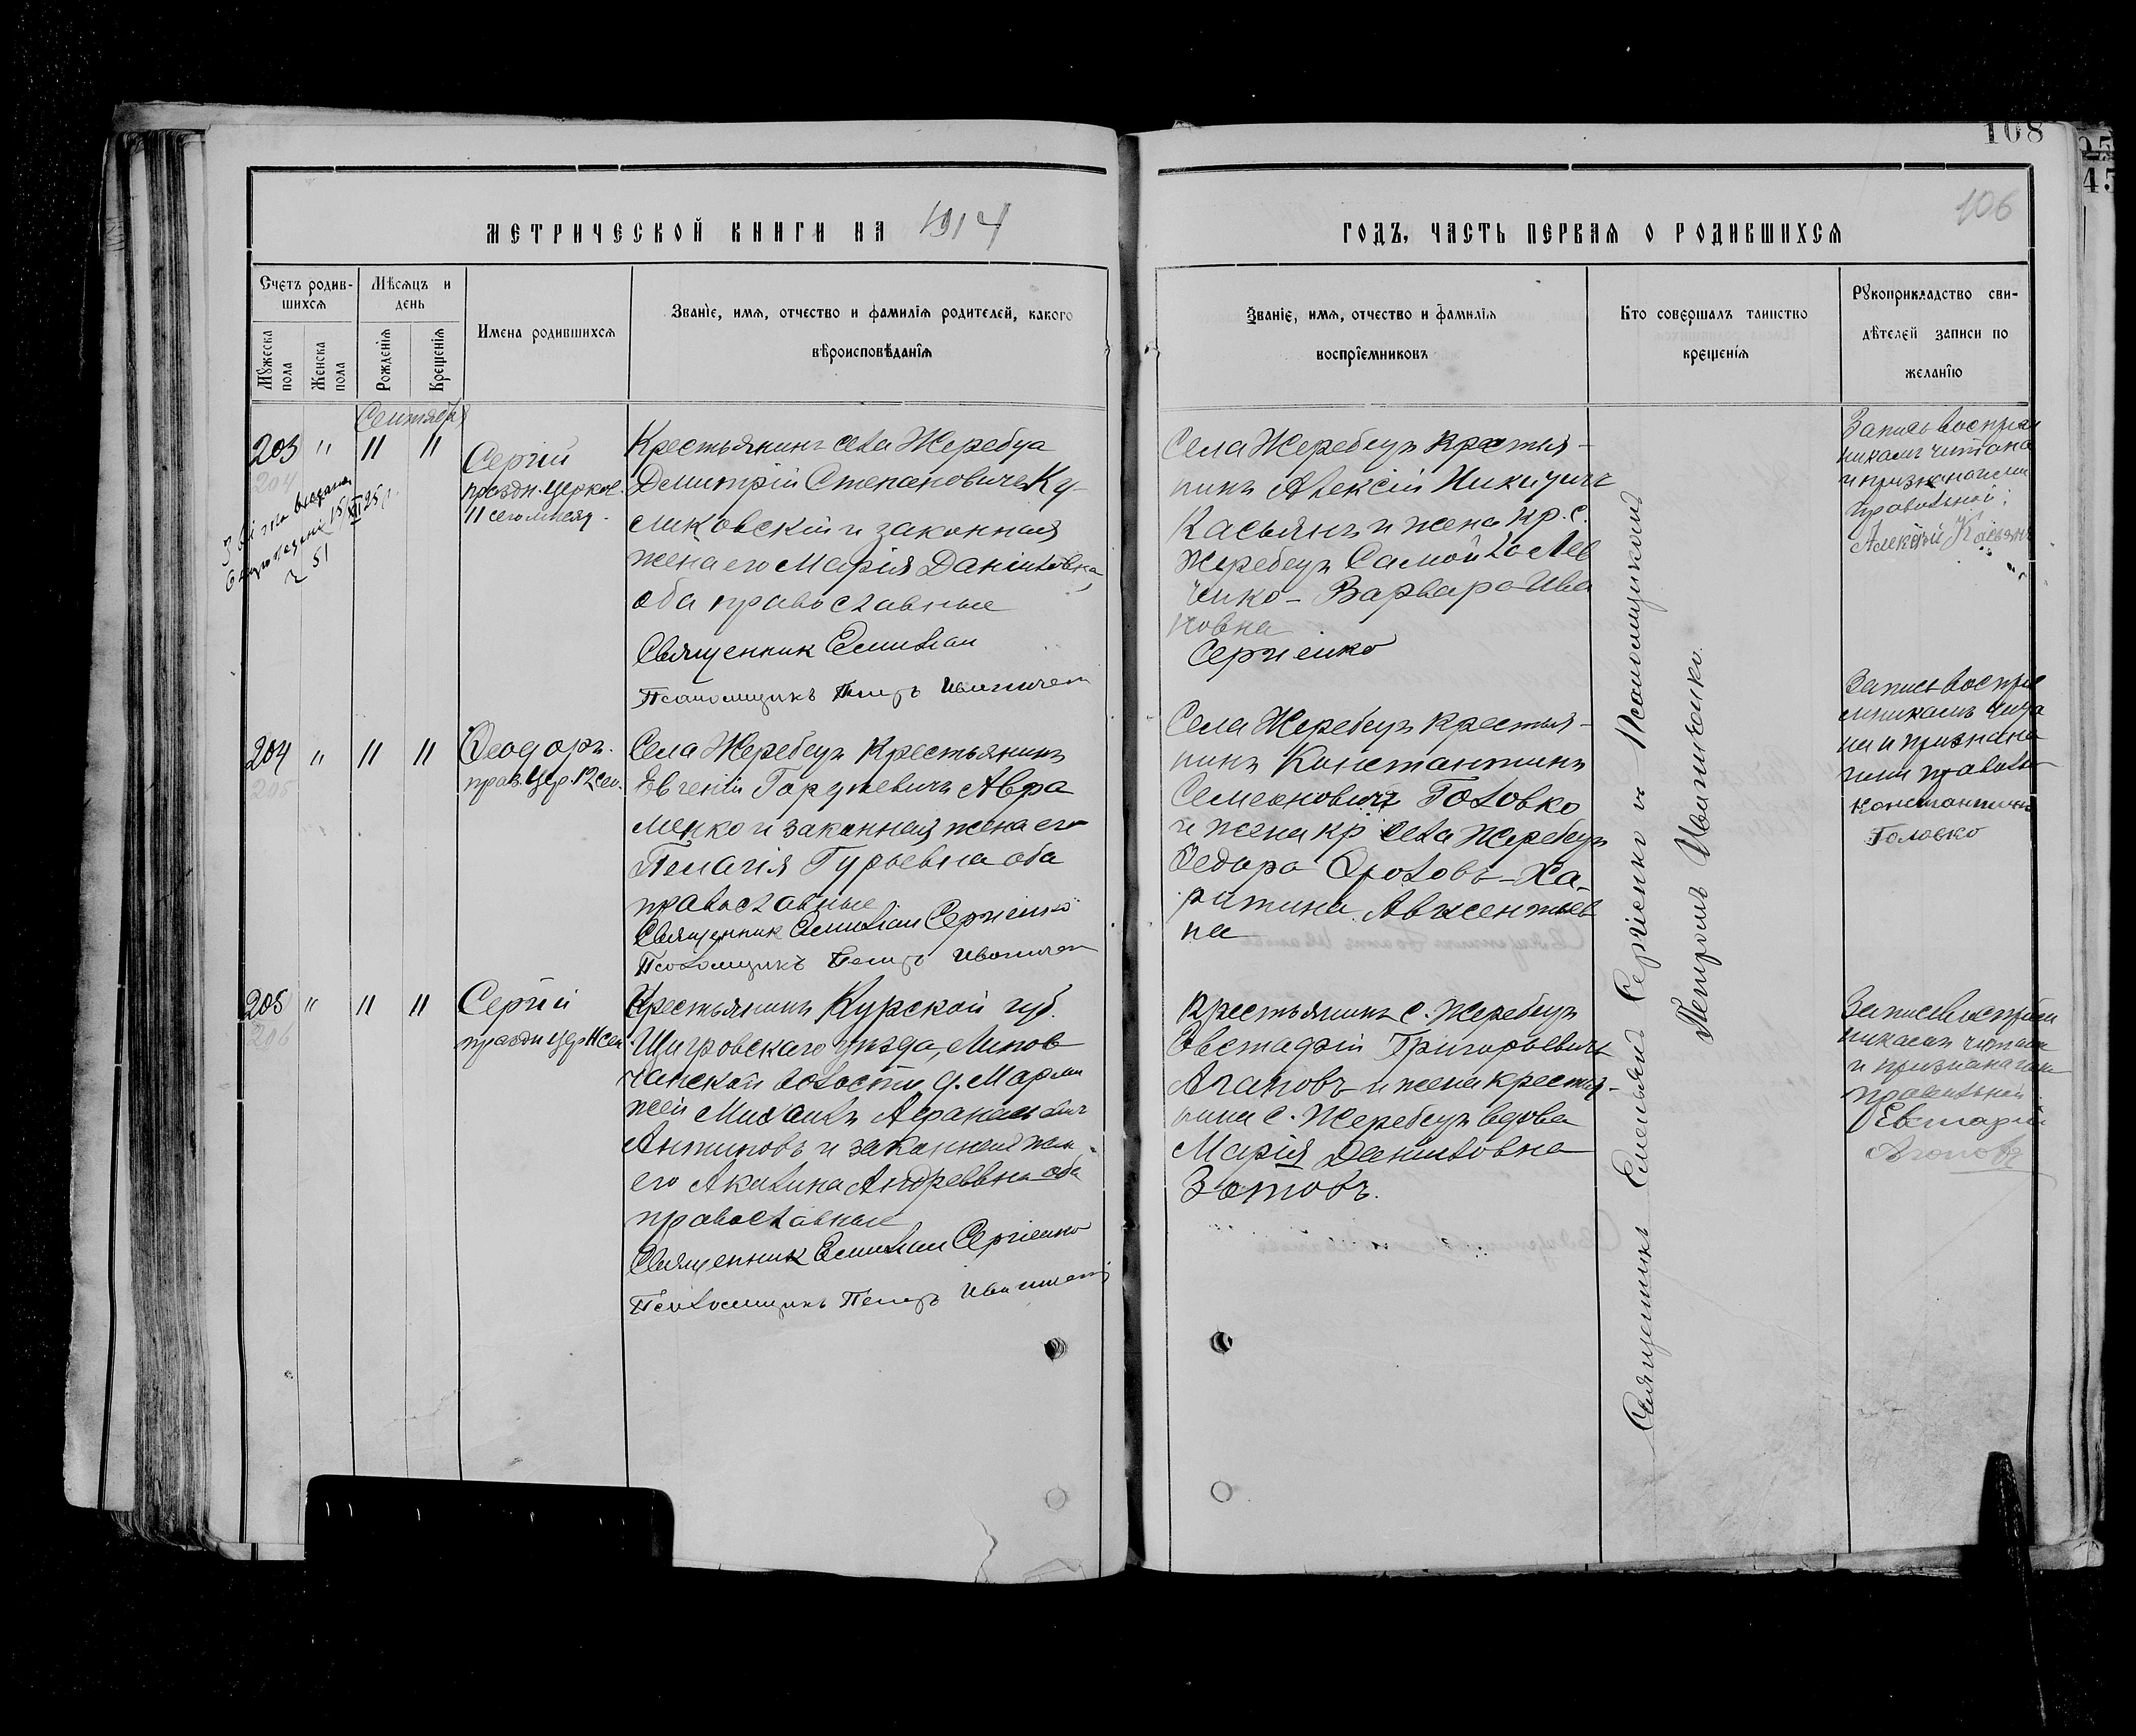 108
106
МЕТРИЧЕСКОЙ КНИГИ НА 1914
ГОДЪ, ЧАСТЬ ПЕРВАЯ О РОДИВШИХСЯ
Счетъ родив-
шихся
Мѣсяцъ и
день
Мужеска
пола
Женска
пола
Рожденія
Крещенія
Имена родившихся
Званіе, имя, отчество и фамилія родителей, какого
вѣроисповѣданія
Званіе, имя, отчество и фамилія
воспріемниковъ
Кто совершалъ таинство
крещенія
Рукоприкладство сви-
дѣтелей записи по
желанію
Сентября
203 " 11 11
204
51
Сергій
праздн. церков.
11 сего месяц.
Крестьянинъ села Жеребца
Димитрій Степановичъ Ку-
ликовскій и законная
жена его Марія Даніиловна,
оба православные
Священник Емилиан
Псаломщикъ Петръ Иваниченко
Села Жеребецъ крестья-
нинъ Алексій Никитичъ
Касьянъ и жена кр. с.
Жеребецъ Самойло Лев
ченко - Варвара Ива
новна
Сергіенко
Запись воспріем
никамъ читана
и признана ими
правильной:
Алексій Касьянъ
204 " 11 11
205
Ѳеодоръ.
праз. цер. 12 сен.
Села Жеребецъ Крестьянинъ
Евгеній Гордіевичъ Авра
менко и законная жена его
Пелагія Гурьевна оба
православные
Священник Емилиан Сергіенко
Псаломщикъ Петръ Иваниченко
Села Жеребецъ крестья-
нинъ Константинъ
Семеновичъ Головко
и жена кр села Жеребецъ
Федора - Ха-
ритина Авксентьев
на
Запись воспріе
мникамъ чита
на и признана
ими правиль
Константинъ
Головко
205 " 11 11
206
Сергій
праздн цер 11 сен
Крестьянинъ Курской губ.
Щигровскаго уѣзда, Липов
чанской волости д.
Михаилъ Афанасьевич
Антиповъ и законная жен.
его Акилина Андреевна оба
православные
Священник Емилиан Сергіенко
Псаломщикъ Петръ Иваниченко
Крестьянинъ с. Жеребецъ
Евстафій Григорьевичъ
Агаповъ и жена крестья-
нина с. Жеребецъ вдова
Марія Даниловна
Зотовъ.
Запись воспріем
никамъ читана
и признана ими
правильной
Евстафій
Агаповъ
Священникъ Емельянъ Сергіенко и Псаломщикомъ
Петромъ Иваниченко.